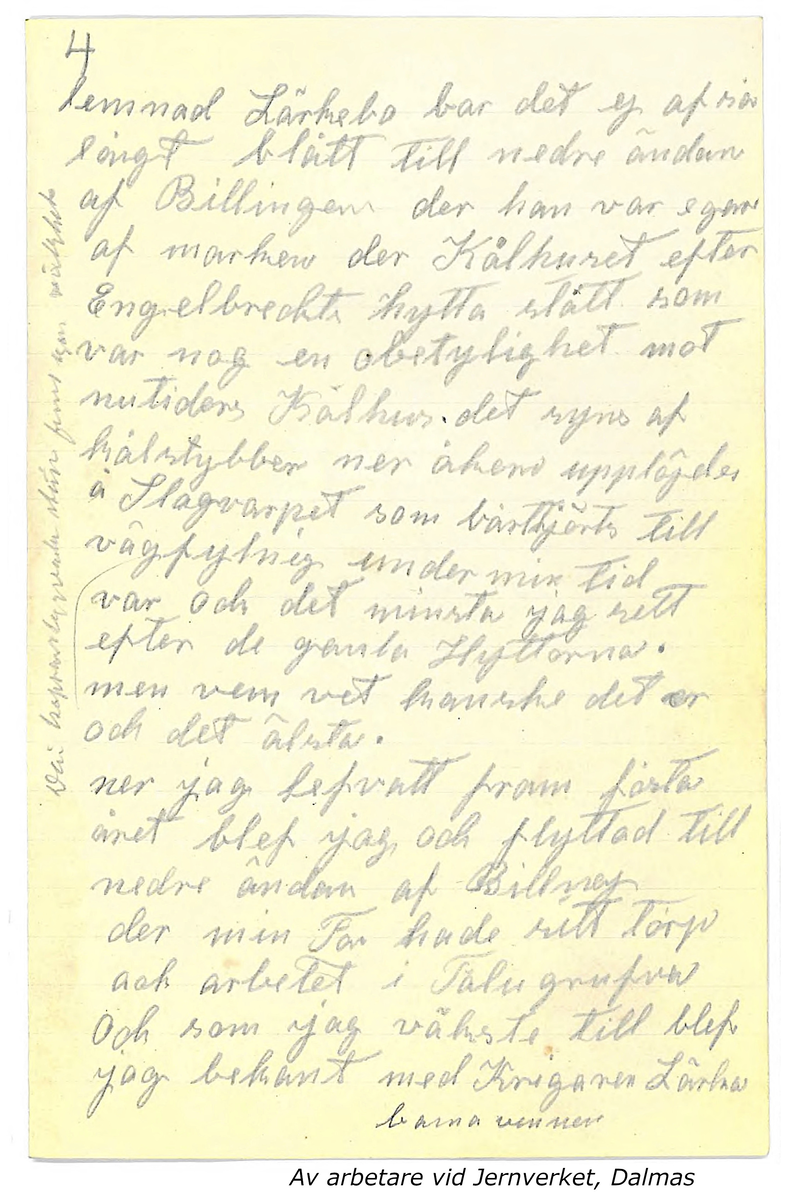 4
lemnad Lärkebo bar det ej af så
långt blått till nedre ändan
af Billingen der han var egare
af marken der Kålhuset efter
Engelbrechts hytta stått som
var nog en obetylighet mot
nutidens Kålhus. det syns af
kålstybben ner åkern upplöjdes
å Slagvarpet som bårttjörts till
vägfylnig under min tid
var och det minsta jag sett
efter de gamla Hyttorna.
men vem vet kanske det er
och det älsta.
ner jag lefvatt fram första
året blef jag och flyttad till
nedre ändan af Billneg
der min Far hade sitt torp
och arbetet i Falu grufva
Och som jag väkste till blef
jag bekant med Krigaren Lärka
barna vennen
finns
Av arbetare vid Jernverket, Dalmas